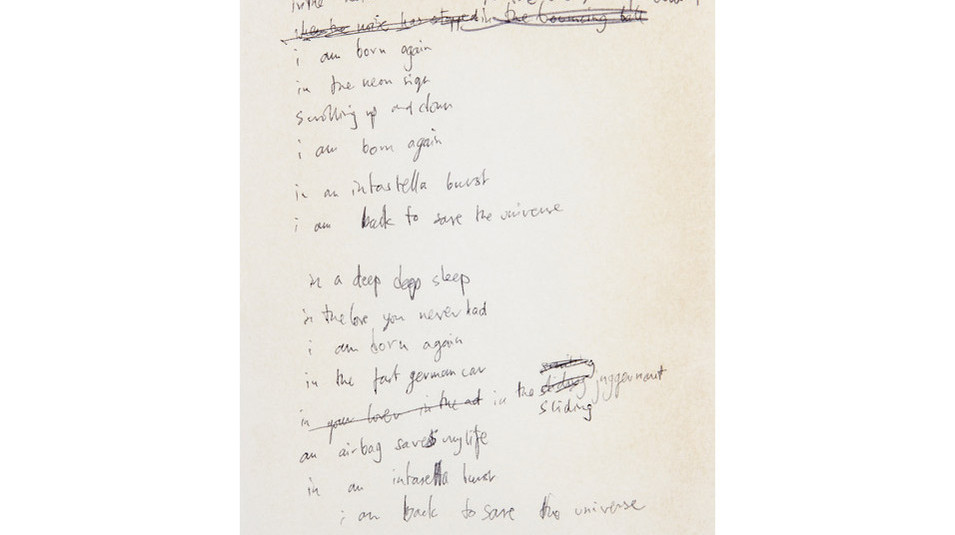 in the
when the noise has stopped in the bouncing ball
i am born again
in the neon sign
scrolling up and down
i am born again
in an intastella burst
i am back to save the universe
in a deep deep sleep
in the love you never had
i am born again
in the fast german car
in your lover in the ad in the sliding sliding juggernaut
an airbag saves my life
in an intastella burst
i am back to save the universe